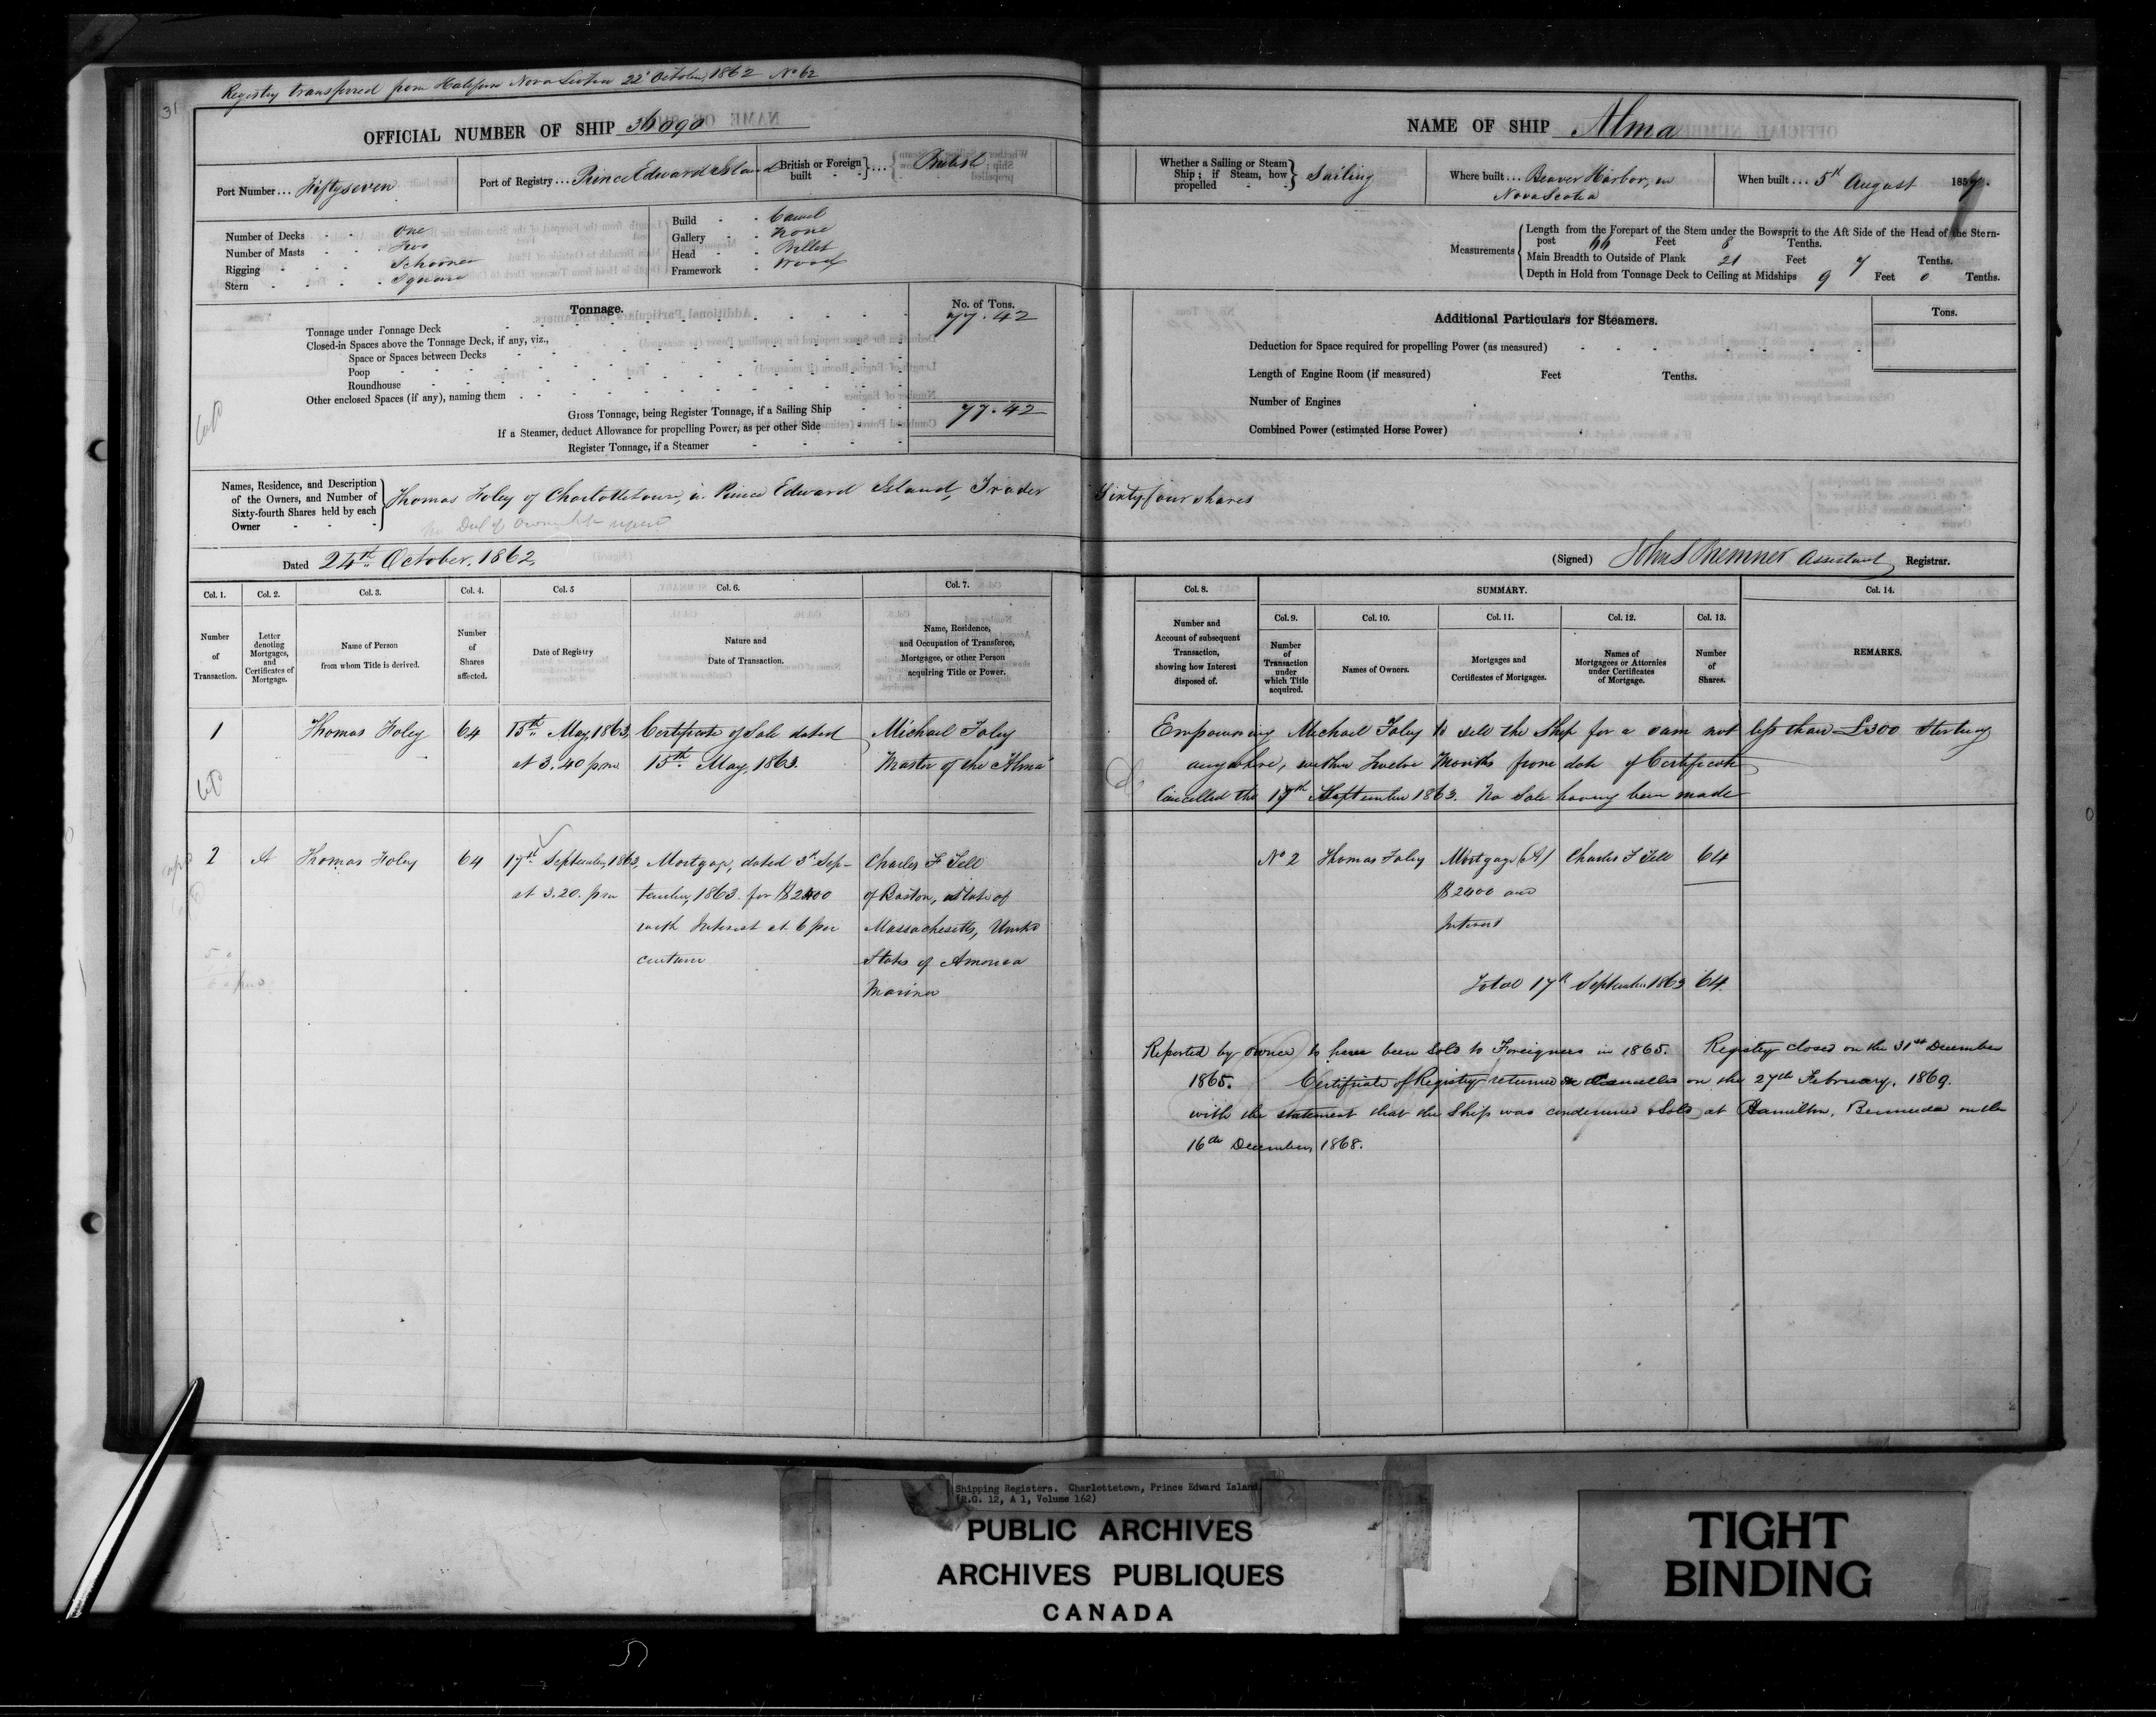 31
Registry transferred from Halifax Nova Scotia 22d October, 1862 No 62
OFFICIAL NUMBER OF SHIP 36090
Port Number ... Fiftyseven
Port of Registry ... Prince Edward Island
British or Foreign built } ... British
Number of Decks - - One
Number of Masts - - Two
Rigging - - - Schooner
Stern - - - - Square
Build - - Carvel
Gallery - - None
Head - - Billet
Framework - Wood
Tonnage.
No. of Tons.
Tonnage under Tonnage Deck 77.42
Closed-in Spaces above the Tonnage Deck, if any, viz.,
Space or Spaces between Decks
Poop
Roundhouse
Other enclosed Spaces (if any), naming them
Gross Tonnage, being Register Tonnage, if a Sailing Ship 77.42
If a Steamer, deduct Allowance for propelling Power, as per other Side
Register Tonnage, if a Steamer
Names, Residence, and Description
of the Owners, and Number of
Sixty-fourth Shares held by each
Owner
Thomas Foley of Charlottetown, in Prince Edward Island, Trader
Dated 24th October, 1862
Col. 1. Col. 2. Col. 3. Col. 4. Col. 5 Col. 6. Col. 7.
Number of Transaction.
Letter denoting Mortgages, and Certificates of Mortgage.
Name of Person from whom Title is derived.
Number of Shares affected.
Date of Registry
Nature and Date of Transaction.
Name, Residence, and Occupation of Transferee, Mortgagee, or other Person acquiring Title or Power.
1 Thomas Foley 64 15th May, 1863 Certificate of Sale dated Michael Foley
at 3.40 pm 15th May, 1863. Master of the "Alma"
2 A Thomas Foley 64 17th September, 1863, Mortgage, dated 3d Sep- Charles F Tell
at 3.20. pm tember, 1863 for $2400 of Boston, State of
with Interest at 6 per Massachusetts, United
centum States of America
Mariner
NAME OF SHIP Alma
Whether a Sailing or Steam Ship; if Steam, how propelled } Sailing
Where built ... Beaver Harbor, in
Nova Scotia
When built ... 5th August 1857.
Measurements
Length from the Forepart of the Stem under the Bowsprit to the Aft Side of the Head of the Stern-
post 66 Feet 8 Tenths.
Main Breadth to Outside of Plank 21 Feet 7 Tenths.
Depth in Hold from Tonnage Deck to Ceiling at Midships 9 Feet 0 Tenths.
Additional Particulars for Steamers.
Tons.
Deduction for Space required for propelling Power (as measured)
Length of Engine Room (if measured) Feet Tenths.
Number of Engines
Combined Power (estimated Horse Power)
Sixty four shares
(Signed) John S Bremner Assistant Registrar.
Col. 8. SUMMARY. Col. 14.
Col. 9. Col. 10. Col. 11. Col. 12. Col. 13.
Number and Account of subsequent Transaction, showing how Interest disposed of.
Number of Transaction under which Title acquired.
Names of Owners.
Mortgages and Certificates of Mortgages.
Names of Mortgagees or Attornies under Certificates of Mortgage.
Number of Shares.
REMARKS.
Empowering Michael Foley to sell the Ship for a sum not less than £300 Sterling
anywhere, within Twelve Months from date of Certificate
Cancelled the 17th September 1863. No Sale having been made
No 2 Thomas Foley Mortgage (A) Charles F Tell 64
$2400 and
Interest
Total 17th September 1863 64.
Reported by owner to have been sold to Foreigners in 1865. Registry closed on the 31st December
1865. Certificate of Registry returned & cancelled on the 27th February, 1869.
with the statement that the Ship was condemned & Sold at Hamilton, Bermuda on the
16th December, 1868.
Shipping Registers. Charlottetown, Prince Edward Island
(R.G. 12, A 1, Volume 162)
PUBLIC ARCHIVES
ARCHIVES PUBLIQUES
CANADA
TIGHT
BINDING